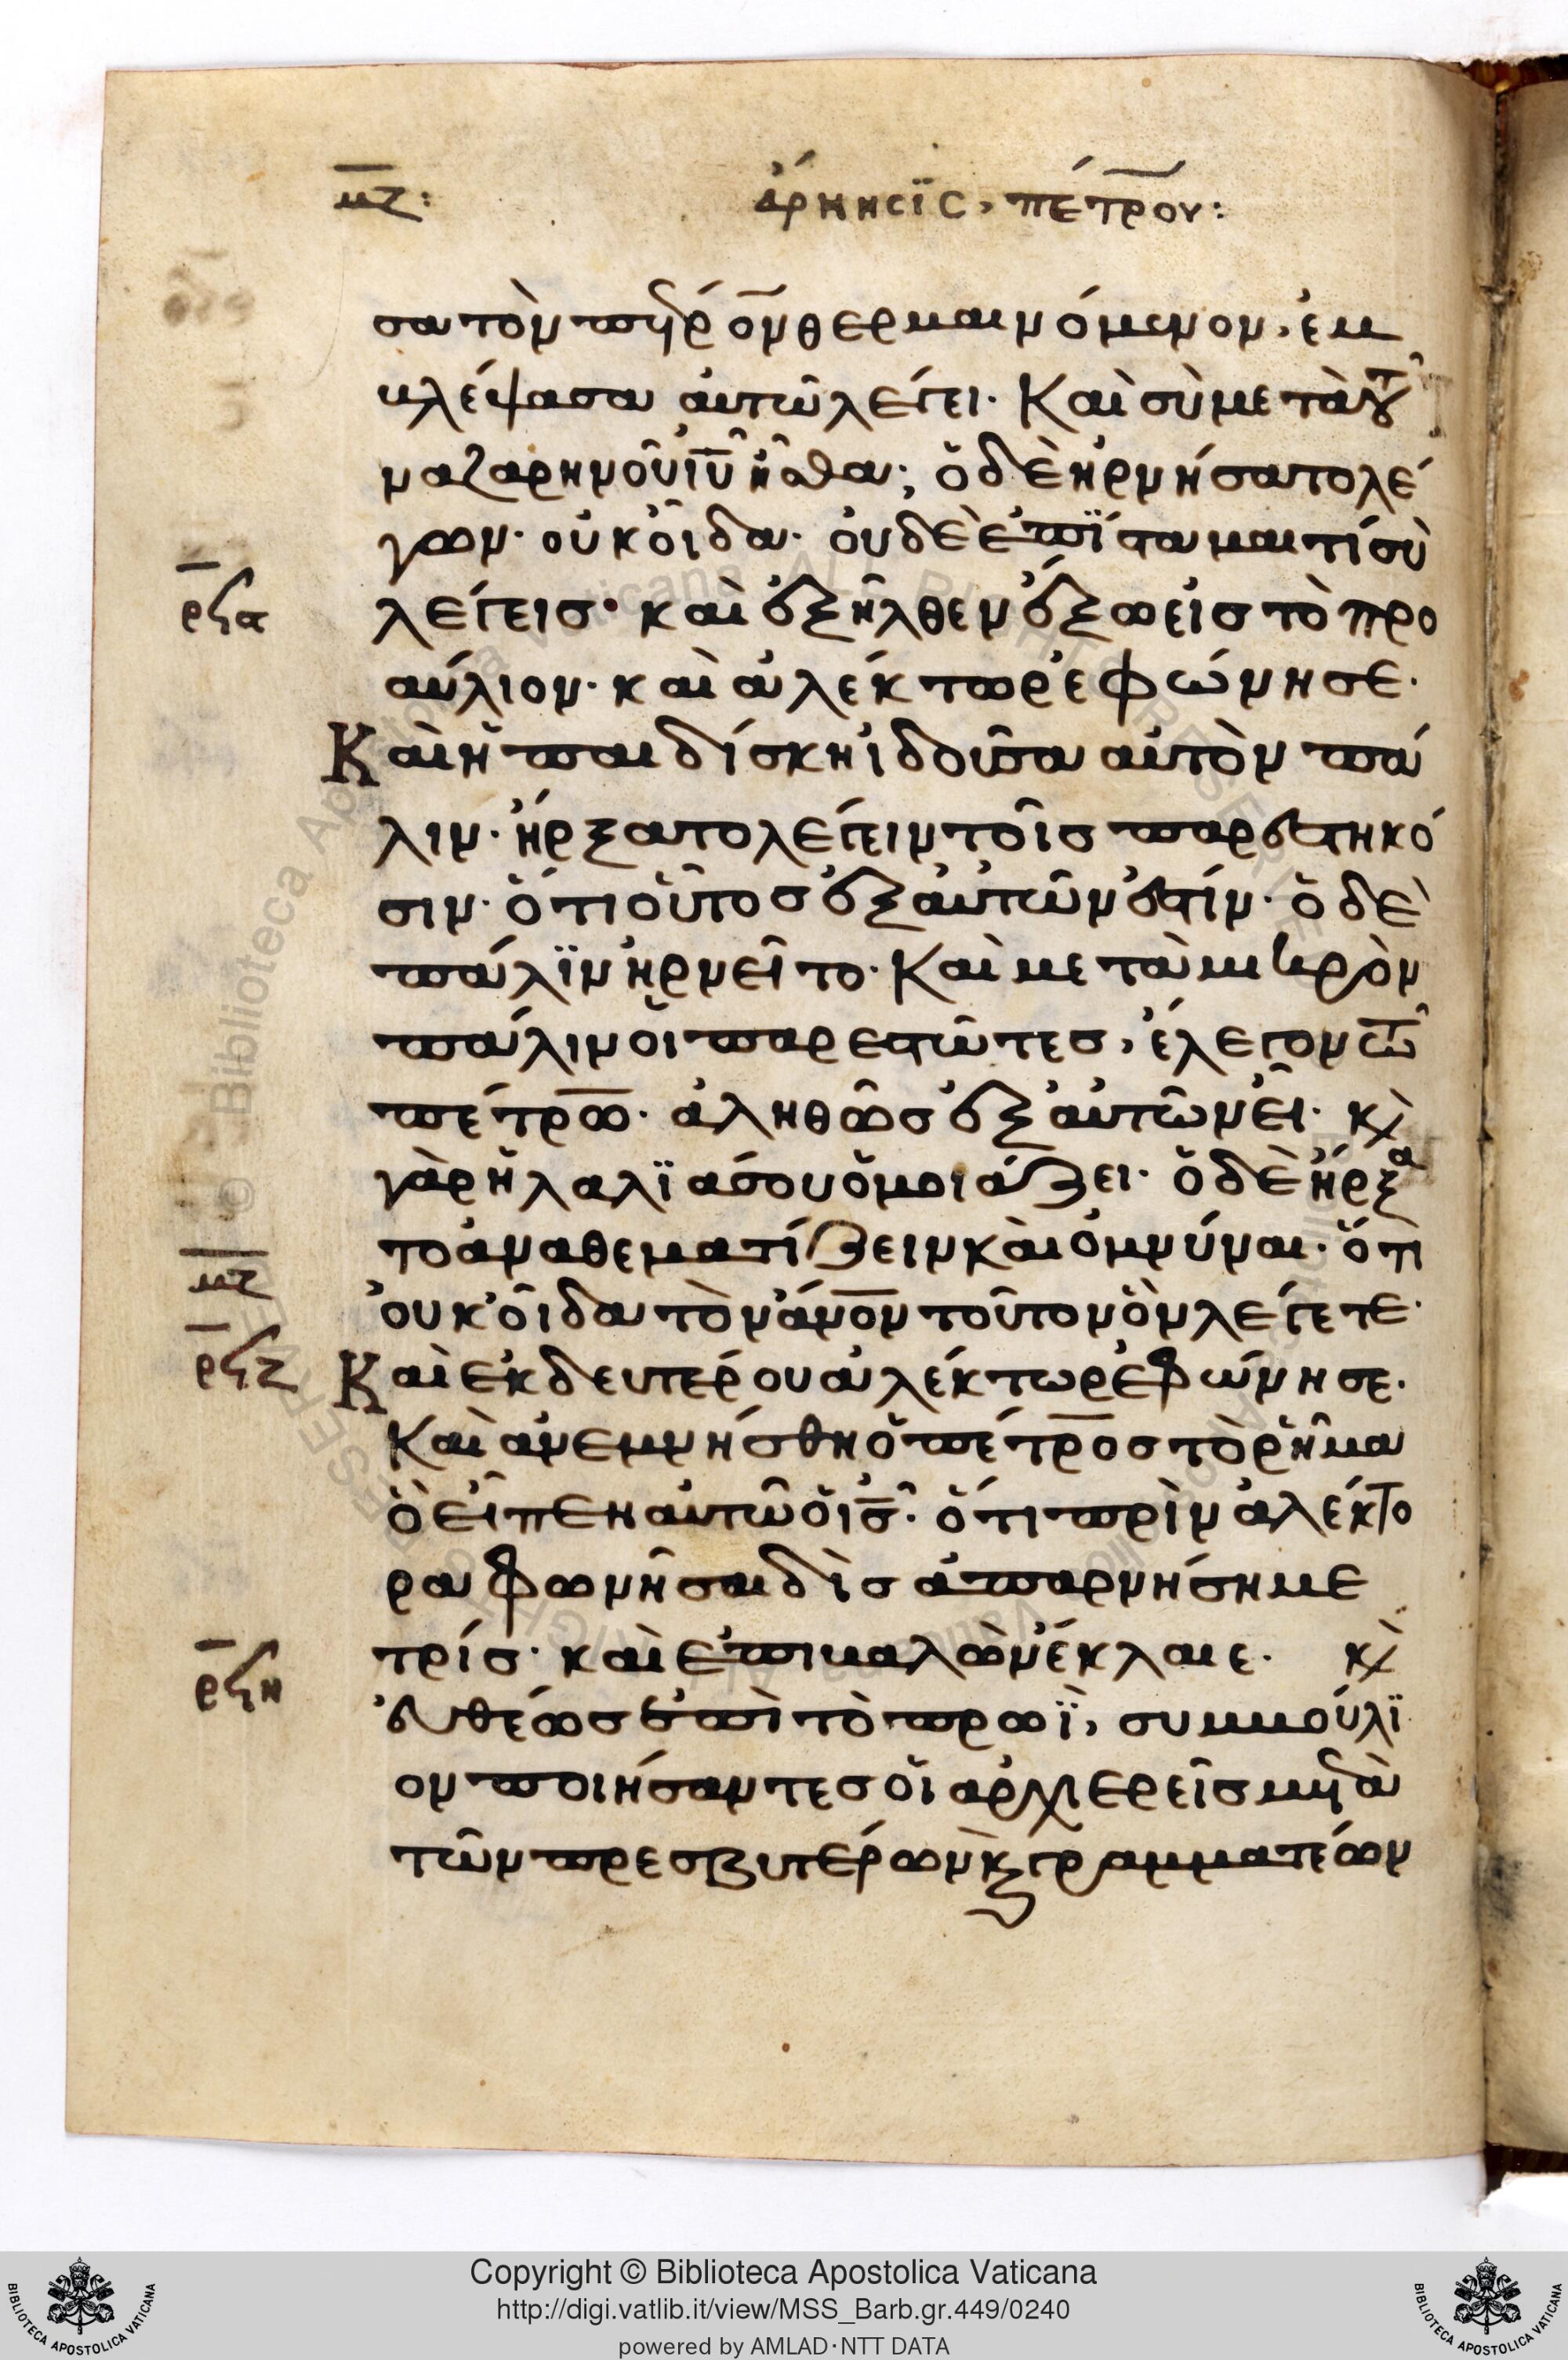 μζ: ἄρνησϊς, πέτρου:
σα τὸν πέτρον θερμαινόμενον, ἐμ
βλέψασα αὐτῶ λέγει· Καὶ σὺ μετὰ τοῦ
ναζαρηνοῦ ἰῦ ἦσθα; ὁ δὲ ἠρνήσατο λέ
γων· οὐκ οἶδα· οὐδὲ ἐπΐσταμαι τί σὺ
ρϟα λέγεισ· καὶ ἐξῆλθεν ἔξω εἰσ τὸ προ
αύλιον· καὶ ἀλέκτωρ ἐφώνησε·
Καὶ ἡ παιδίσκη ἰδοῦσα αὐτὸν πά
λιν· ἤρξατο λέγειν τοῖσ παρεστηκό
σιν· ὅτι οὗτοσ ἐξ αὐτῶν ἐστίν· ὁ δὲ
πάλϊν ἠρνεῖτο· Καὶ μετὰ μικρὸν
πάλιν οἱ παρεστῶτεσ, ἔλεγον τῶ
πέτρω· ἀληθῶσ ἐξ αὐτῶν εἶ· κ̀
γὰρ ἡ λαλϊά σου ὁμοιάζει· ὁ δὲ ἤρξα
το ἀναθεματίζειν καὶ ὀμνύναι· ὅτι
μζ
οὐκ οἶδα τὸν ἄνον τοῦτον ὃν λέγετε·
ρϟζ Καὶ ἐκ δευτέρου ἀλέκτωρ ἐφώνησε·
Καὶ ἀνεμνήσθη ὁ πέτροσ τὸ ῥῆμα
ὃ εἶπεν αὐτῶ ὁ ισ· ὅτι πρὶν ἀλέκτο
ρα φωνῆσαι δὶσ ἀπαρνήση με
τρίσ· καὶ ἐπιβαλὼν ἔκλαιε· κ̀
ρϟη εὐθέωσ ἐπὶ τὸ πρωῒ, συμβούλϊ
ον ποιήσαντεσ οἱ ἀρχιερεῖσ μετὰ
τῶν πρεσβυτέρων κ̀ γραμματέων
Copyright © Biblioteca Apostolica Vaticana
http://digi.vatlib.it/view/MSS_Barb.gr.449/0240
powered by AMLAD·NTT DATA